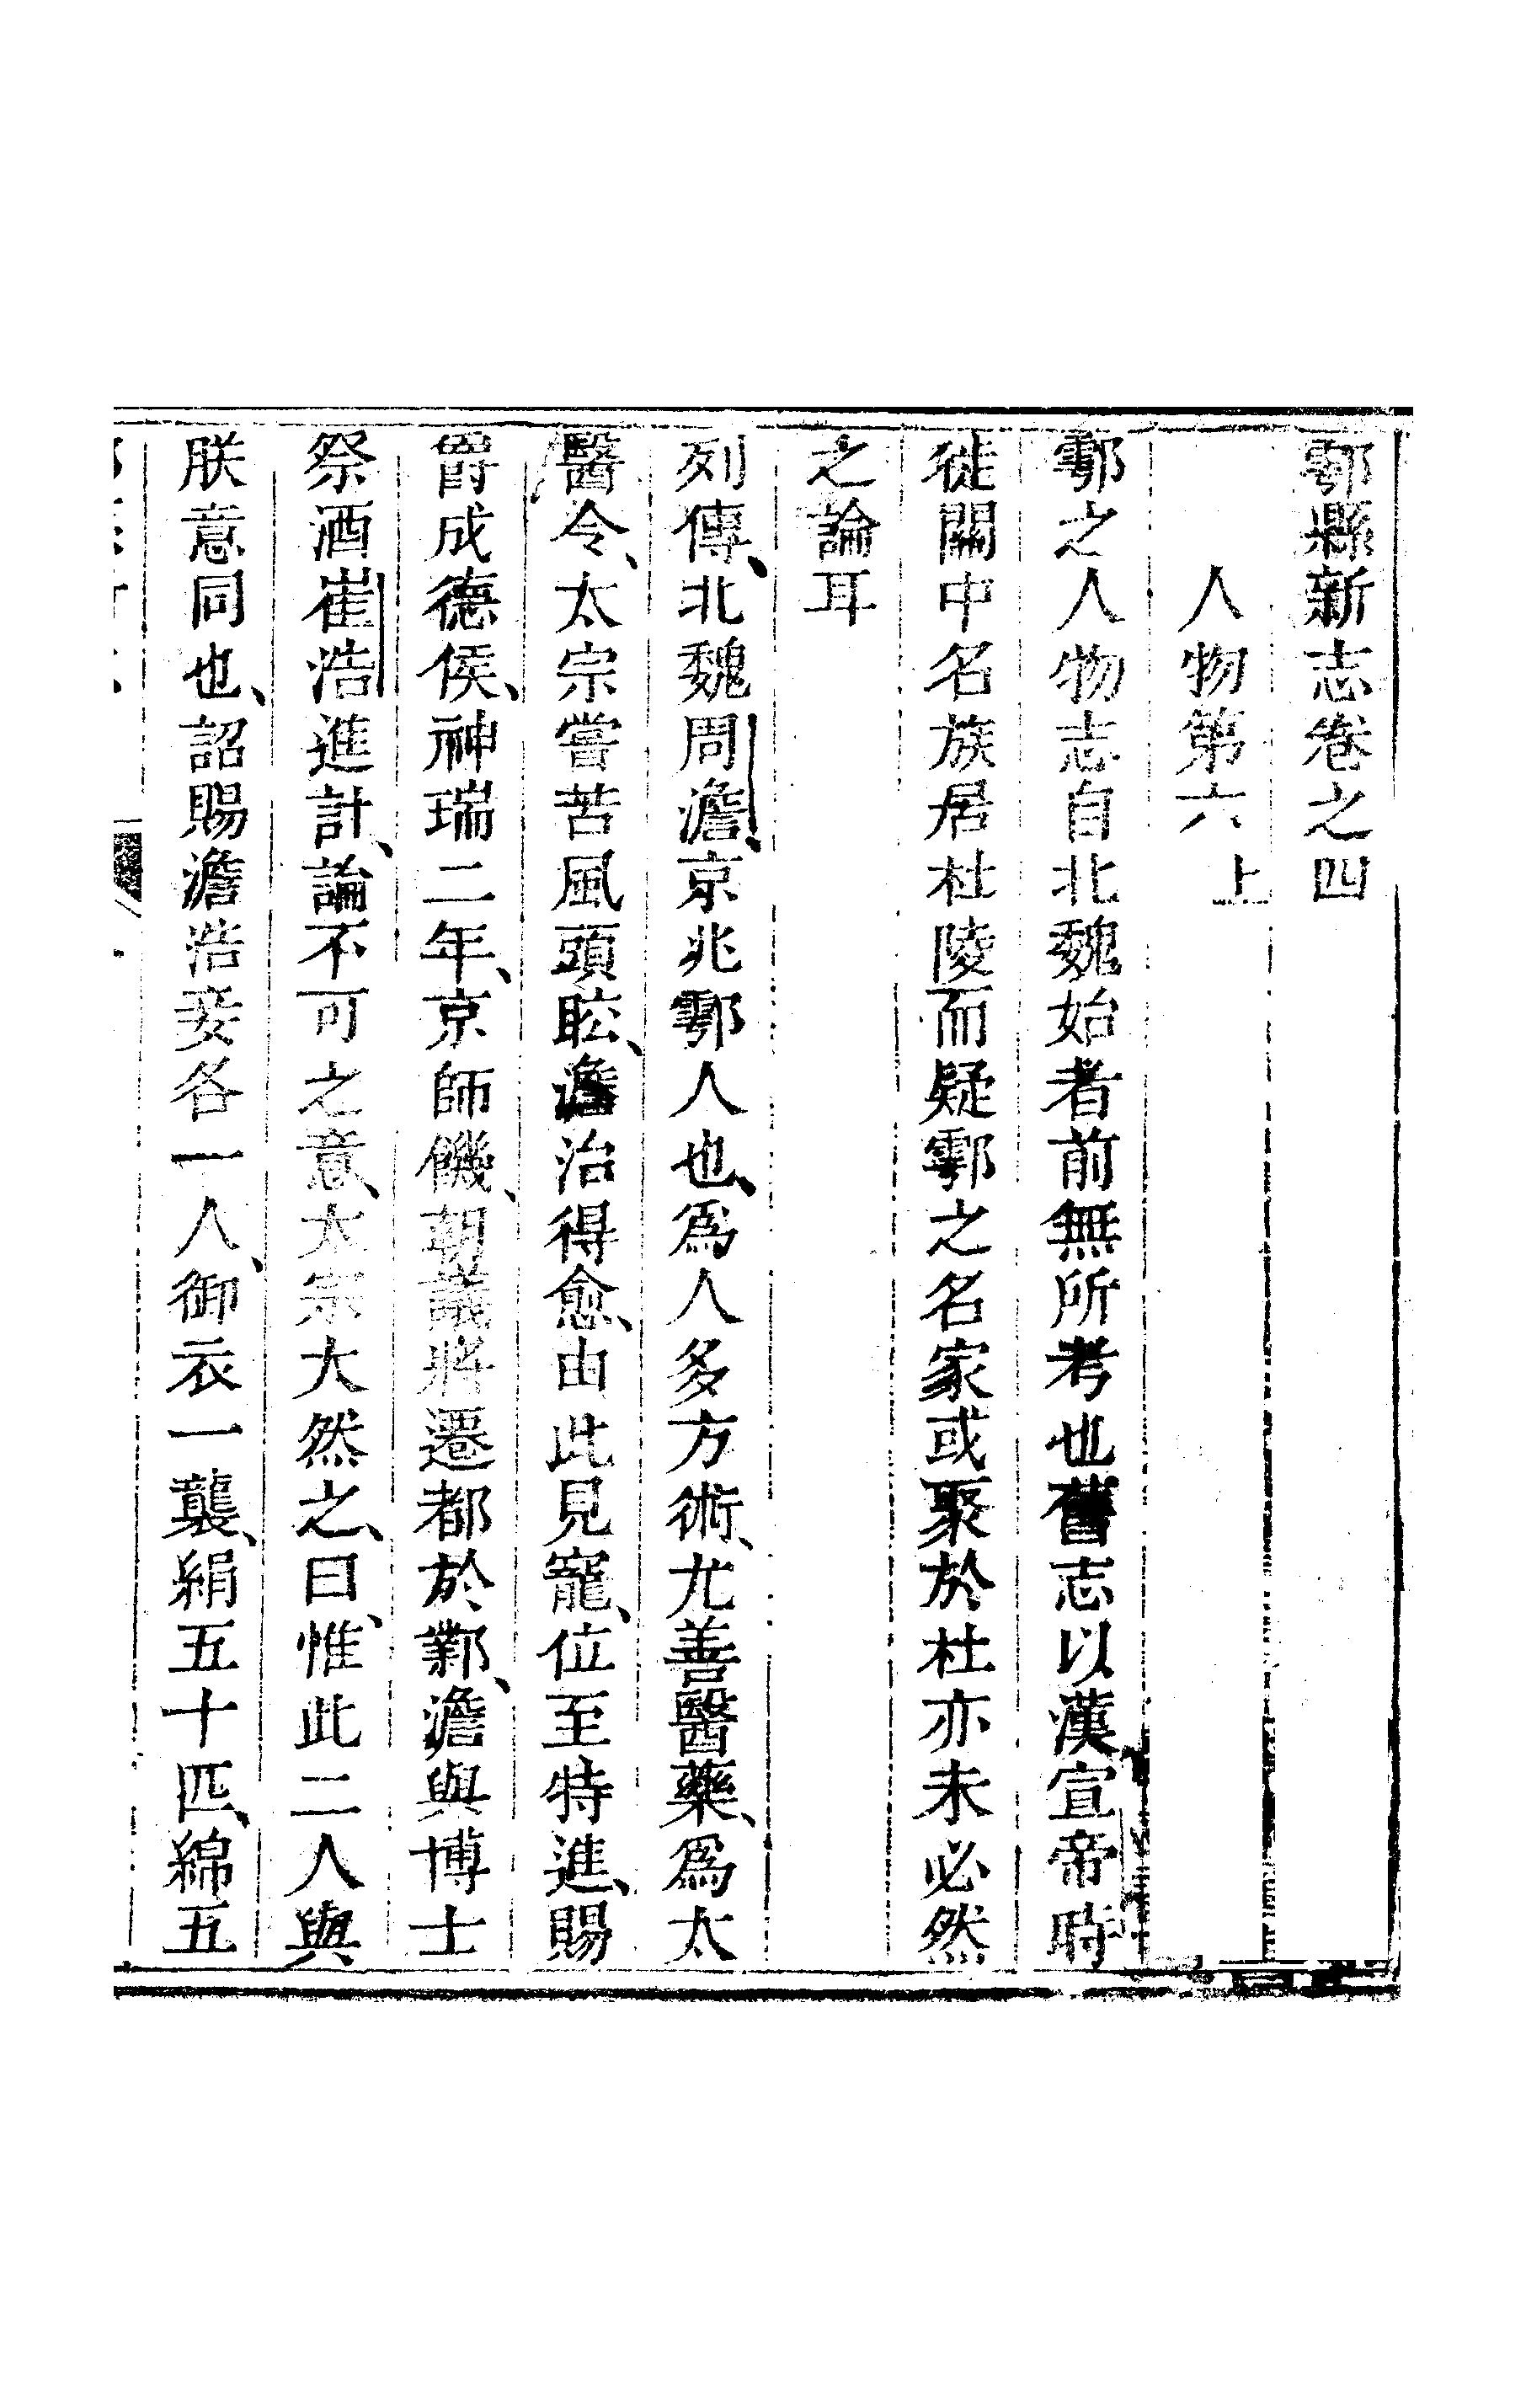 鄠縣新志卷之四
人物第六上
鄠之人物志自北魏始者前無所考也舊志以漢宣帝時
徙關中名族居杜陵而疑鄠之名家或聚於杜亦未必然
之論耳
列傳、北魏周澹、京兆鄠人也、爲人多方術、尤善醫藥、爲太
醫令、太宗嘗苦風頭眩、澹治得愈、由此見寵、位至特進、賜
爵成德侯、神瑞二年、京師饑、朝議將遷都於鄴、澹與博士
祭酒崔浩進計、論不可之意、太宗大然之、曰、惟此二人與
朕意同也、詔賜澹浩妾各一人、御衣一襲、絹五十匹、綿五